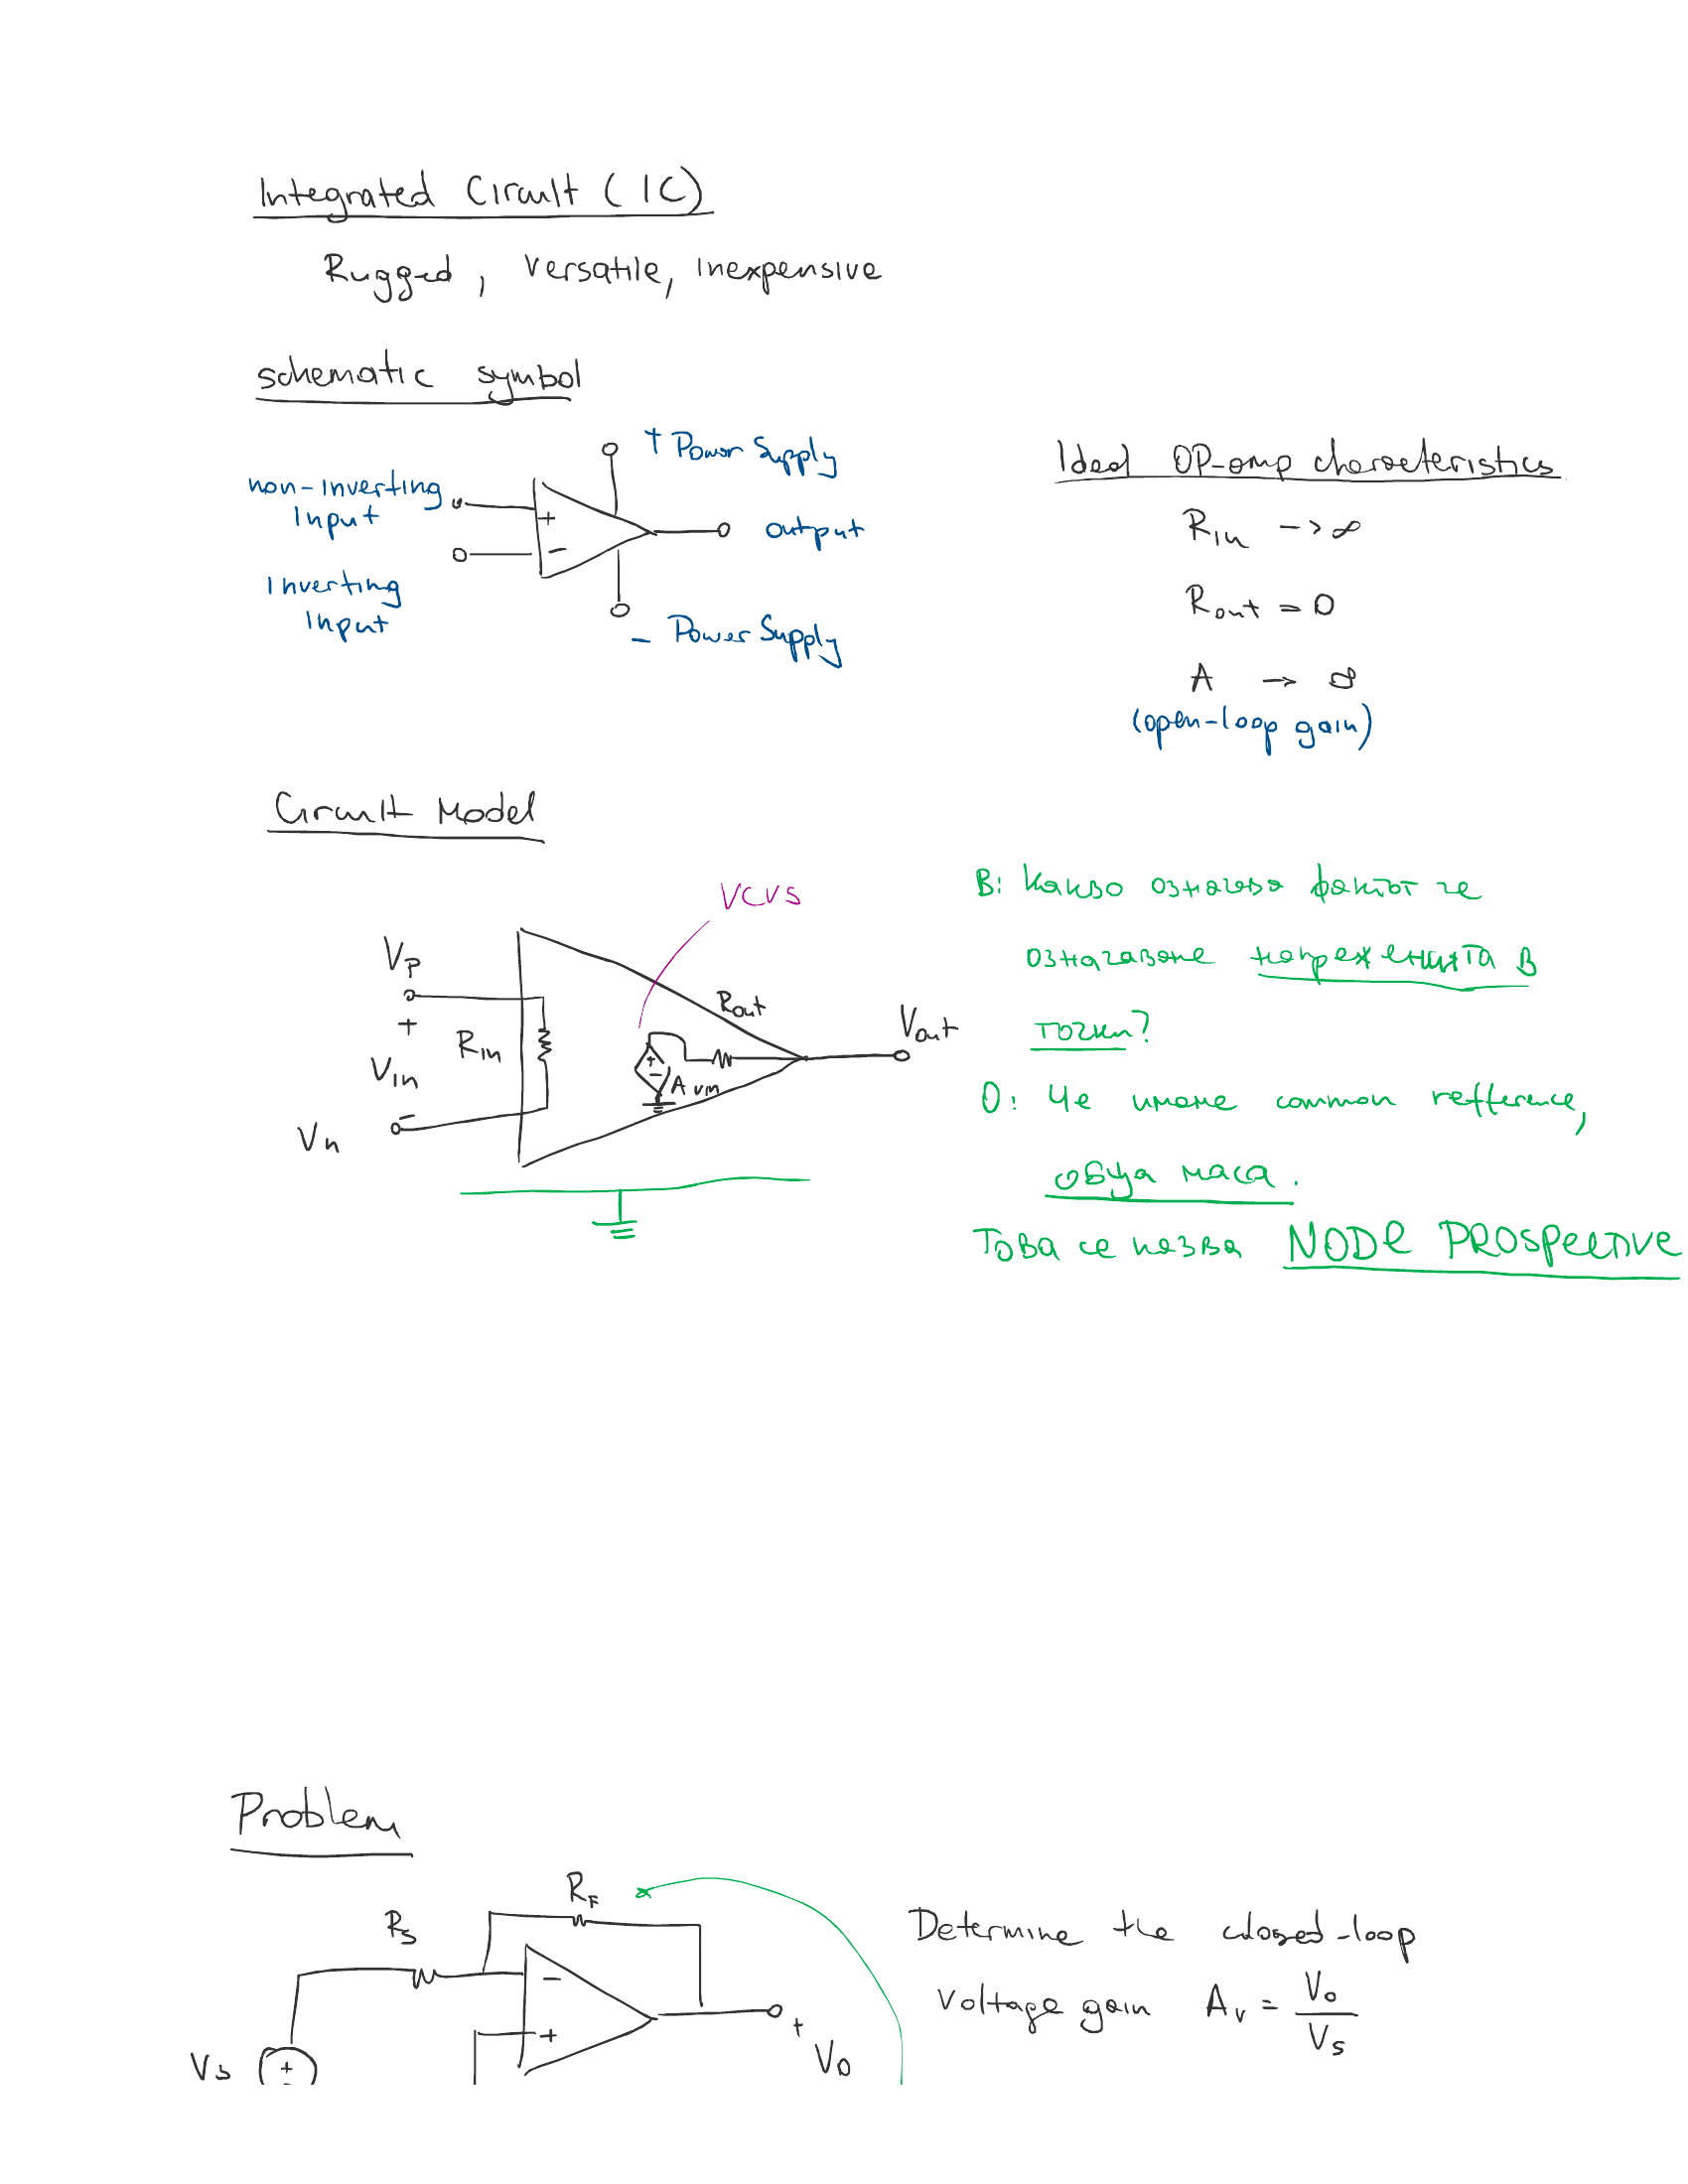 Integrated Circuit (IC)
Rugged, Versatile, inexpensive
schematic symbol
+ Power Supply
non-inverting
Input
+
-
output
Inverting
Input
- Power Supply
Ideal OP-amp characteristics
Rin -> ∞
Rout = 0
A → ∞
(open-loop gain)
Circuit Model
VCVS
Vp
+
Rin
Vin
-
Vn
Rout
+
-
A vin
Vout
В: Какво означава фактът че
означаваме напреженията в
точки?
О: Че имаме common refference,
обща маса.
Това се казва NODE PROSPECTIVE
Problem
RF
Rs
-
+
Vs
+
+
Vo
Determine the closed-loop
Voltage gain Av = Vo
Vs